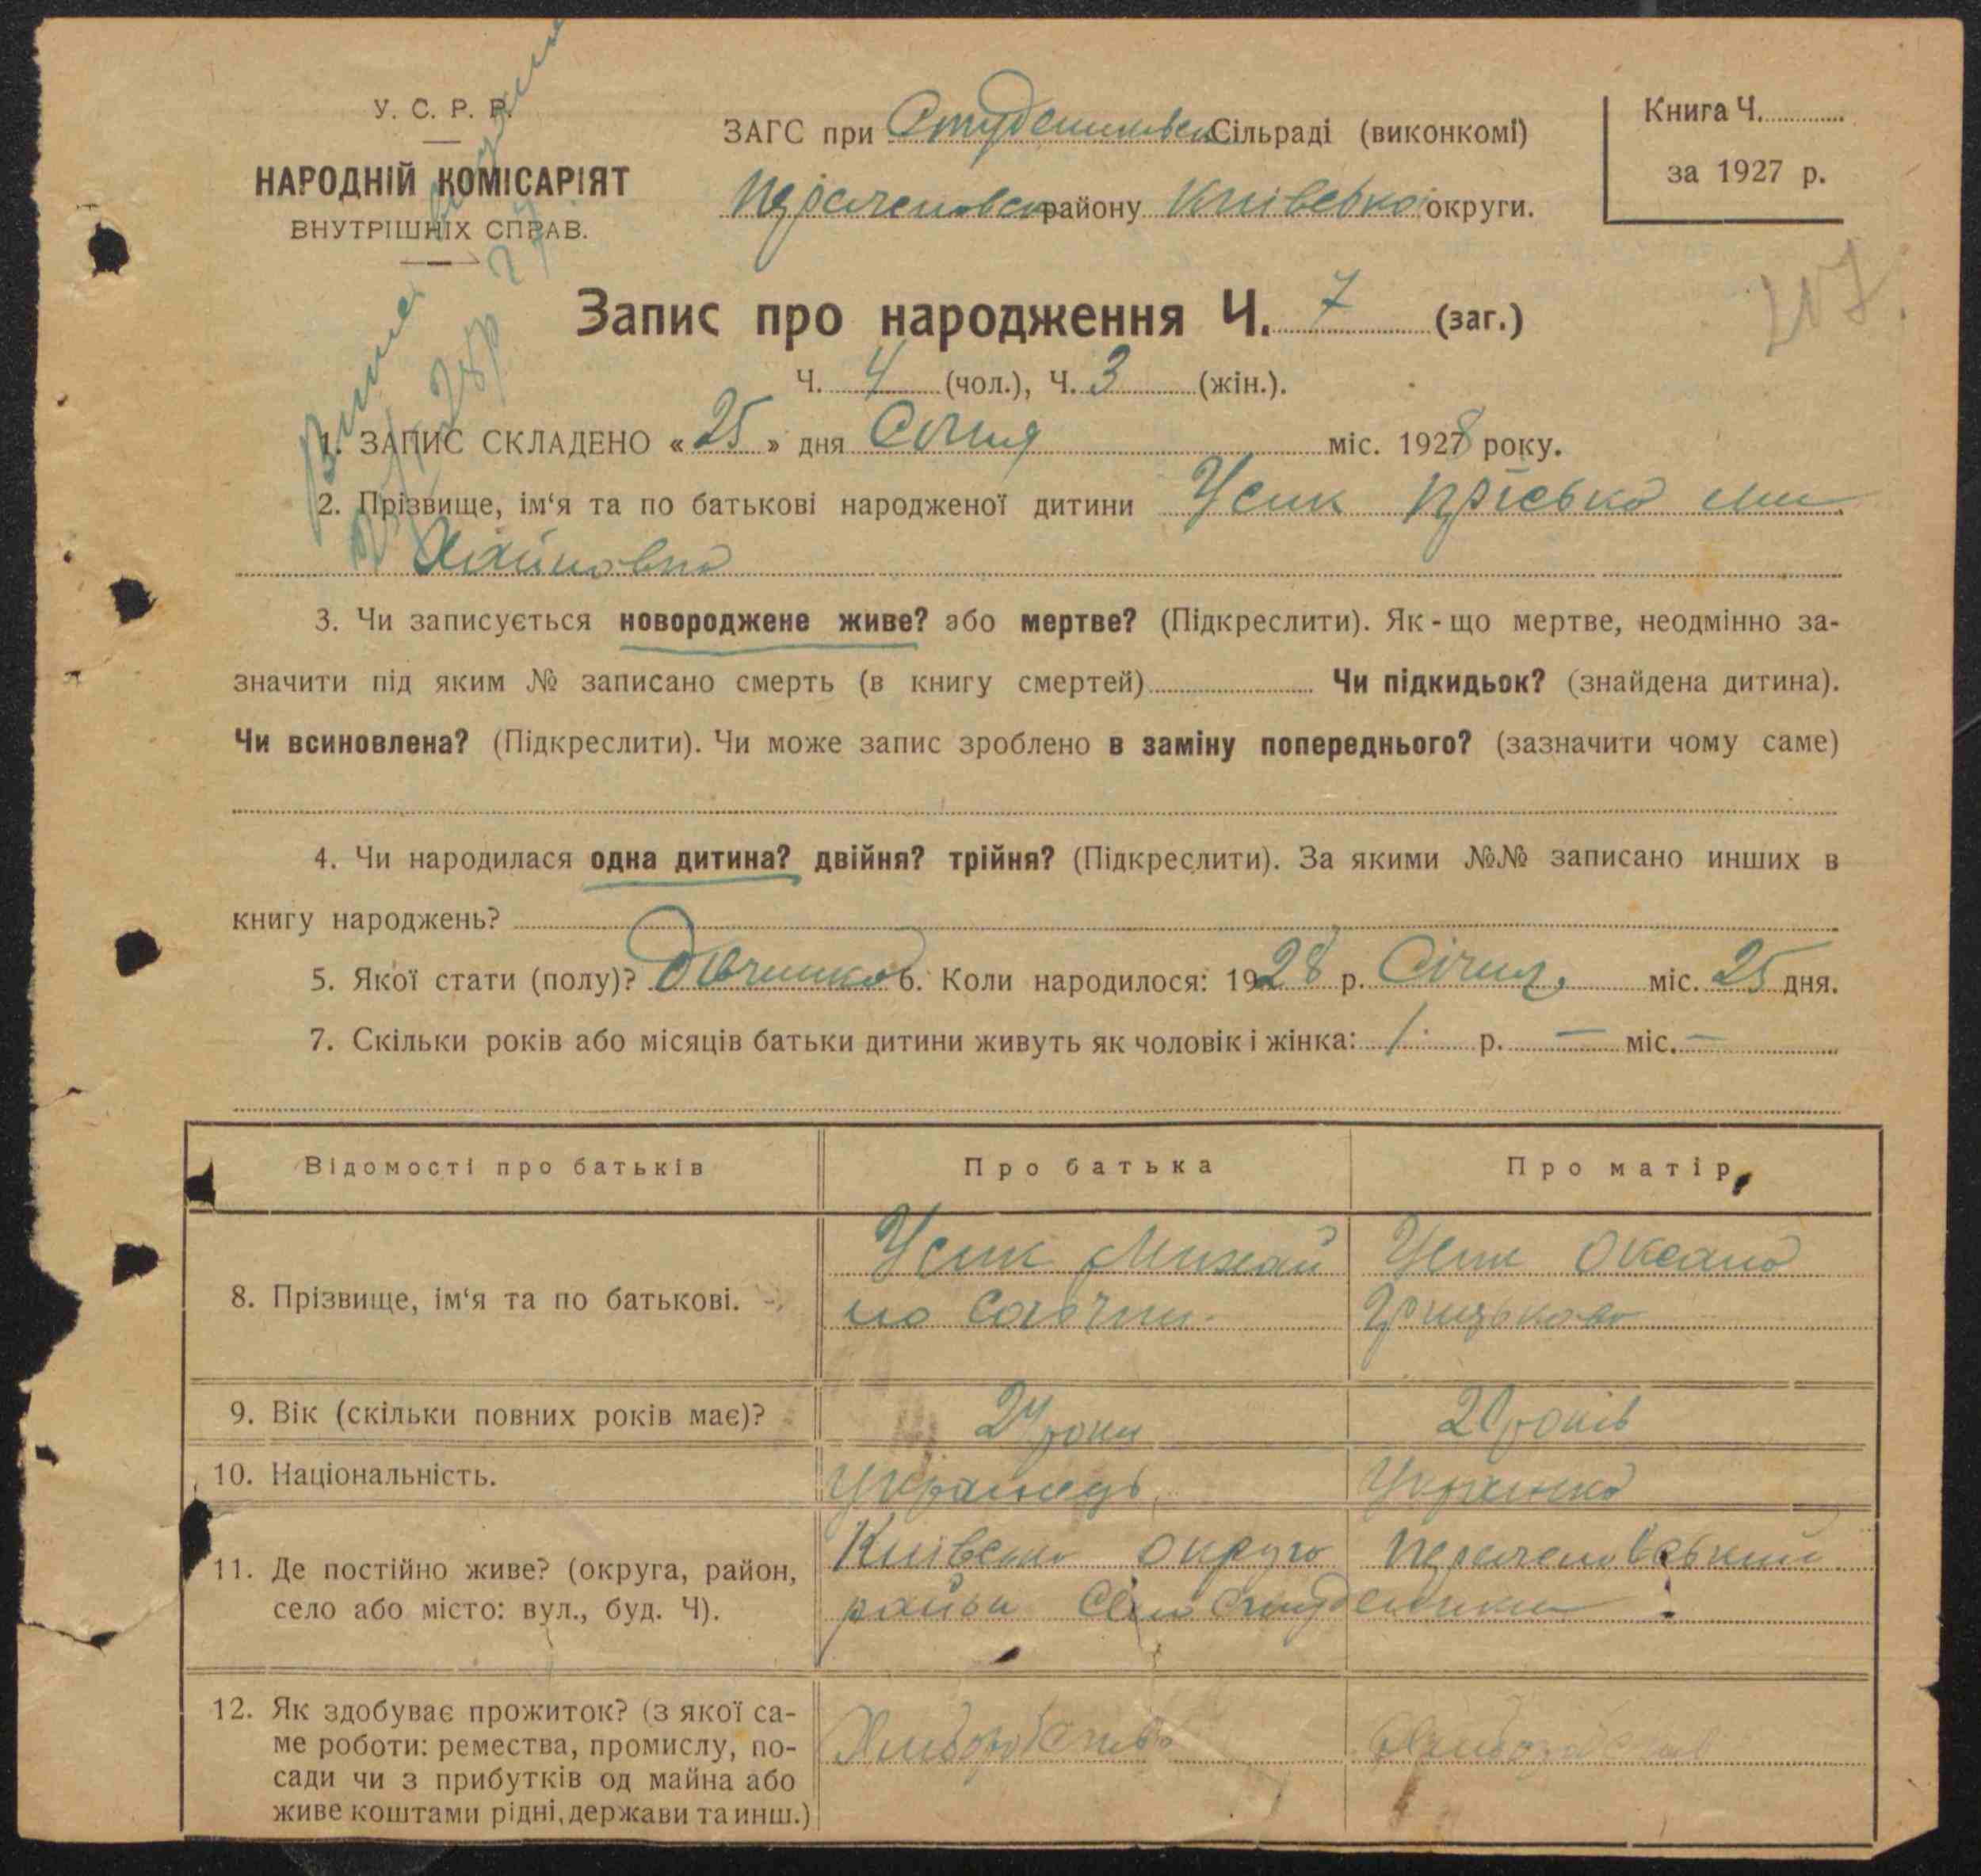 У. С. Р. Р.
НАРОДНІЙ КОМІСАРІЯТ
ВНУТРІШНІХ СПРАВ.
ЗАГС при Студениківск Сільраді (виконкомі)
району Київсько округи.
Книга Ч.
за 1927 р.
207.
Запис про народження Ч. 7 (заг.)
Ч. 4 (чол.), Ч. 3 (жін.).
1. ЗАПИС СКЛАДЕНО « 25 » дня Січня міс. 1928 року.
2. Прізвище, ім‘я та по батькові народженої дитини Усик Пріська Ми
хайловна
3. Чи записується новороджене живе? або мертве? (Підкреслити). Як-що мертве, неодмінно за-
значити під яким № записано смерть (в книгу смертей) Чи підкидьок? (знайдена дитина).
Чи всиновлена? (Підкреслити). Чи може запис зроблено в заміну попереднього? (зазначити чому саме)
4. Чи народилася одна дитина? двійня? трійня? (Підкреслити). За якими №№ записано инших в
книгу народжень?
5. Якої стати (полу)? Дівчинка 6. Коли народилося: 1928 р. Січня міс. 25 дня.
7. Скільки років або місяців батьки дитини живуть як чоловік і жінка: 1 р. — міс. —
Відомості про батьків Про батька Про матір
8. Прізвище, ім‘я та по батькові. Усик Михай Усик Оксана
ло Грицькова
9. Вік (скільки повних років має)? 24 роки 20 років
10. Національність. Українець Українка
11. Де постійно живе? (округа, район, Київська округа
село або місто: вул., буд. Ч). район Село Студеники
12. Як здобуває прожиток? (з якої са-
ме роботи: ремества, промислу, по- Хлібороб
сади чи з прибутків од майна або
живе коштами рідні, держави та инш.)